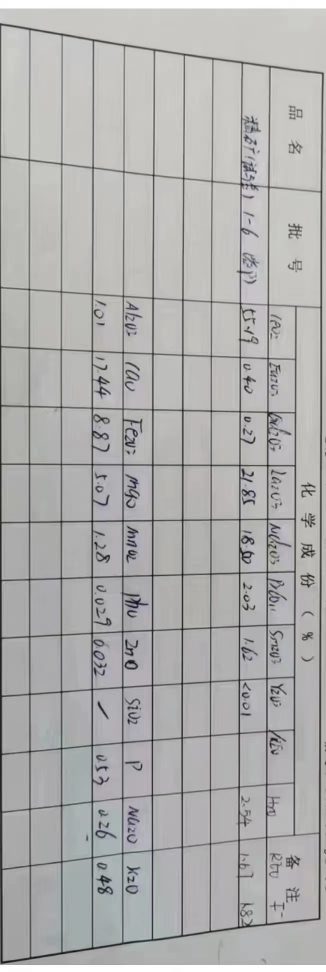 品名 批号 化学成份（%） 备注
CeO₂ Eu₂O₃ Gd₂O₃ La₂O₃ Nd₂O₃ Pr₆O₁₁ Sm₂O₃ Y₂O₃ H₂O F⁻
1-6 55.19 0.40 0.27 21.85 18.50 2.03 1.62 <0.01 2.54 1.67
Al₂O₃ CaO Fe₂O₃ MgO MnO₂ PbO ZnO SiO₂ P Na₂O K₂O
1.01 17.44 8.87 5.07 1.28 0.029 0.032 / 0.53 0.26 0.48